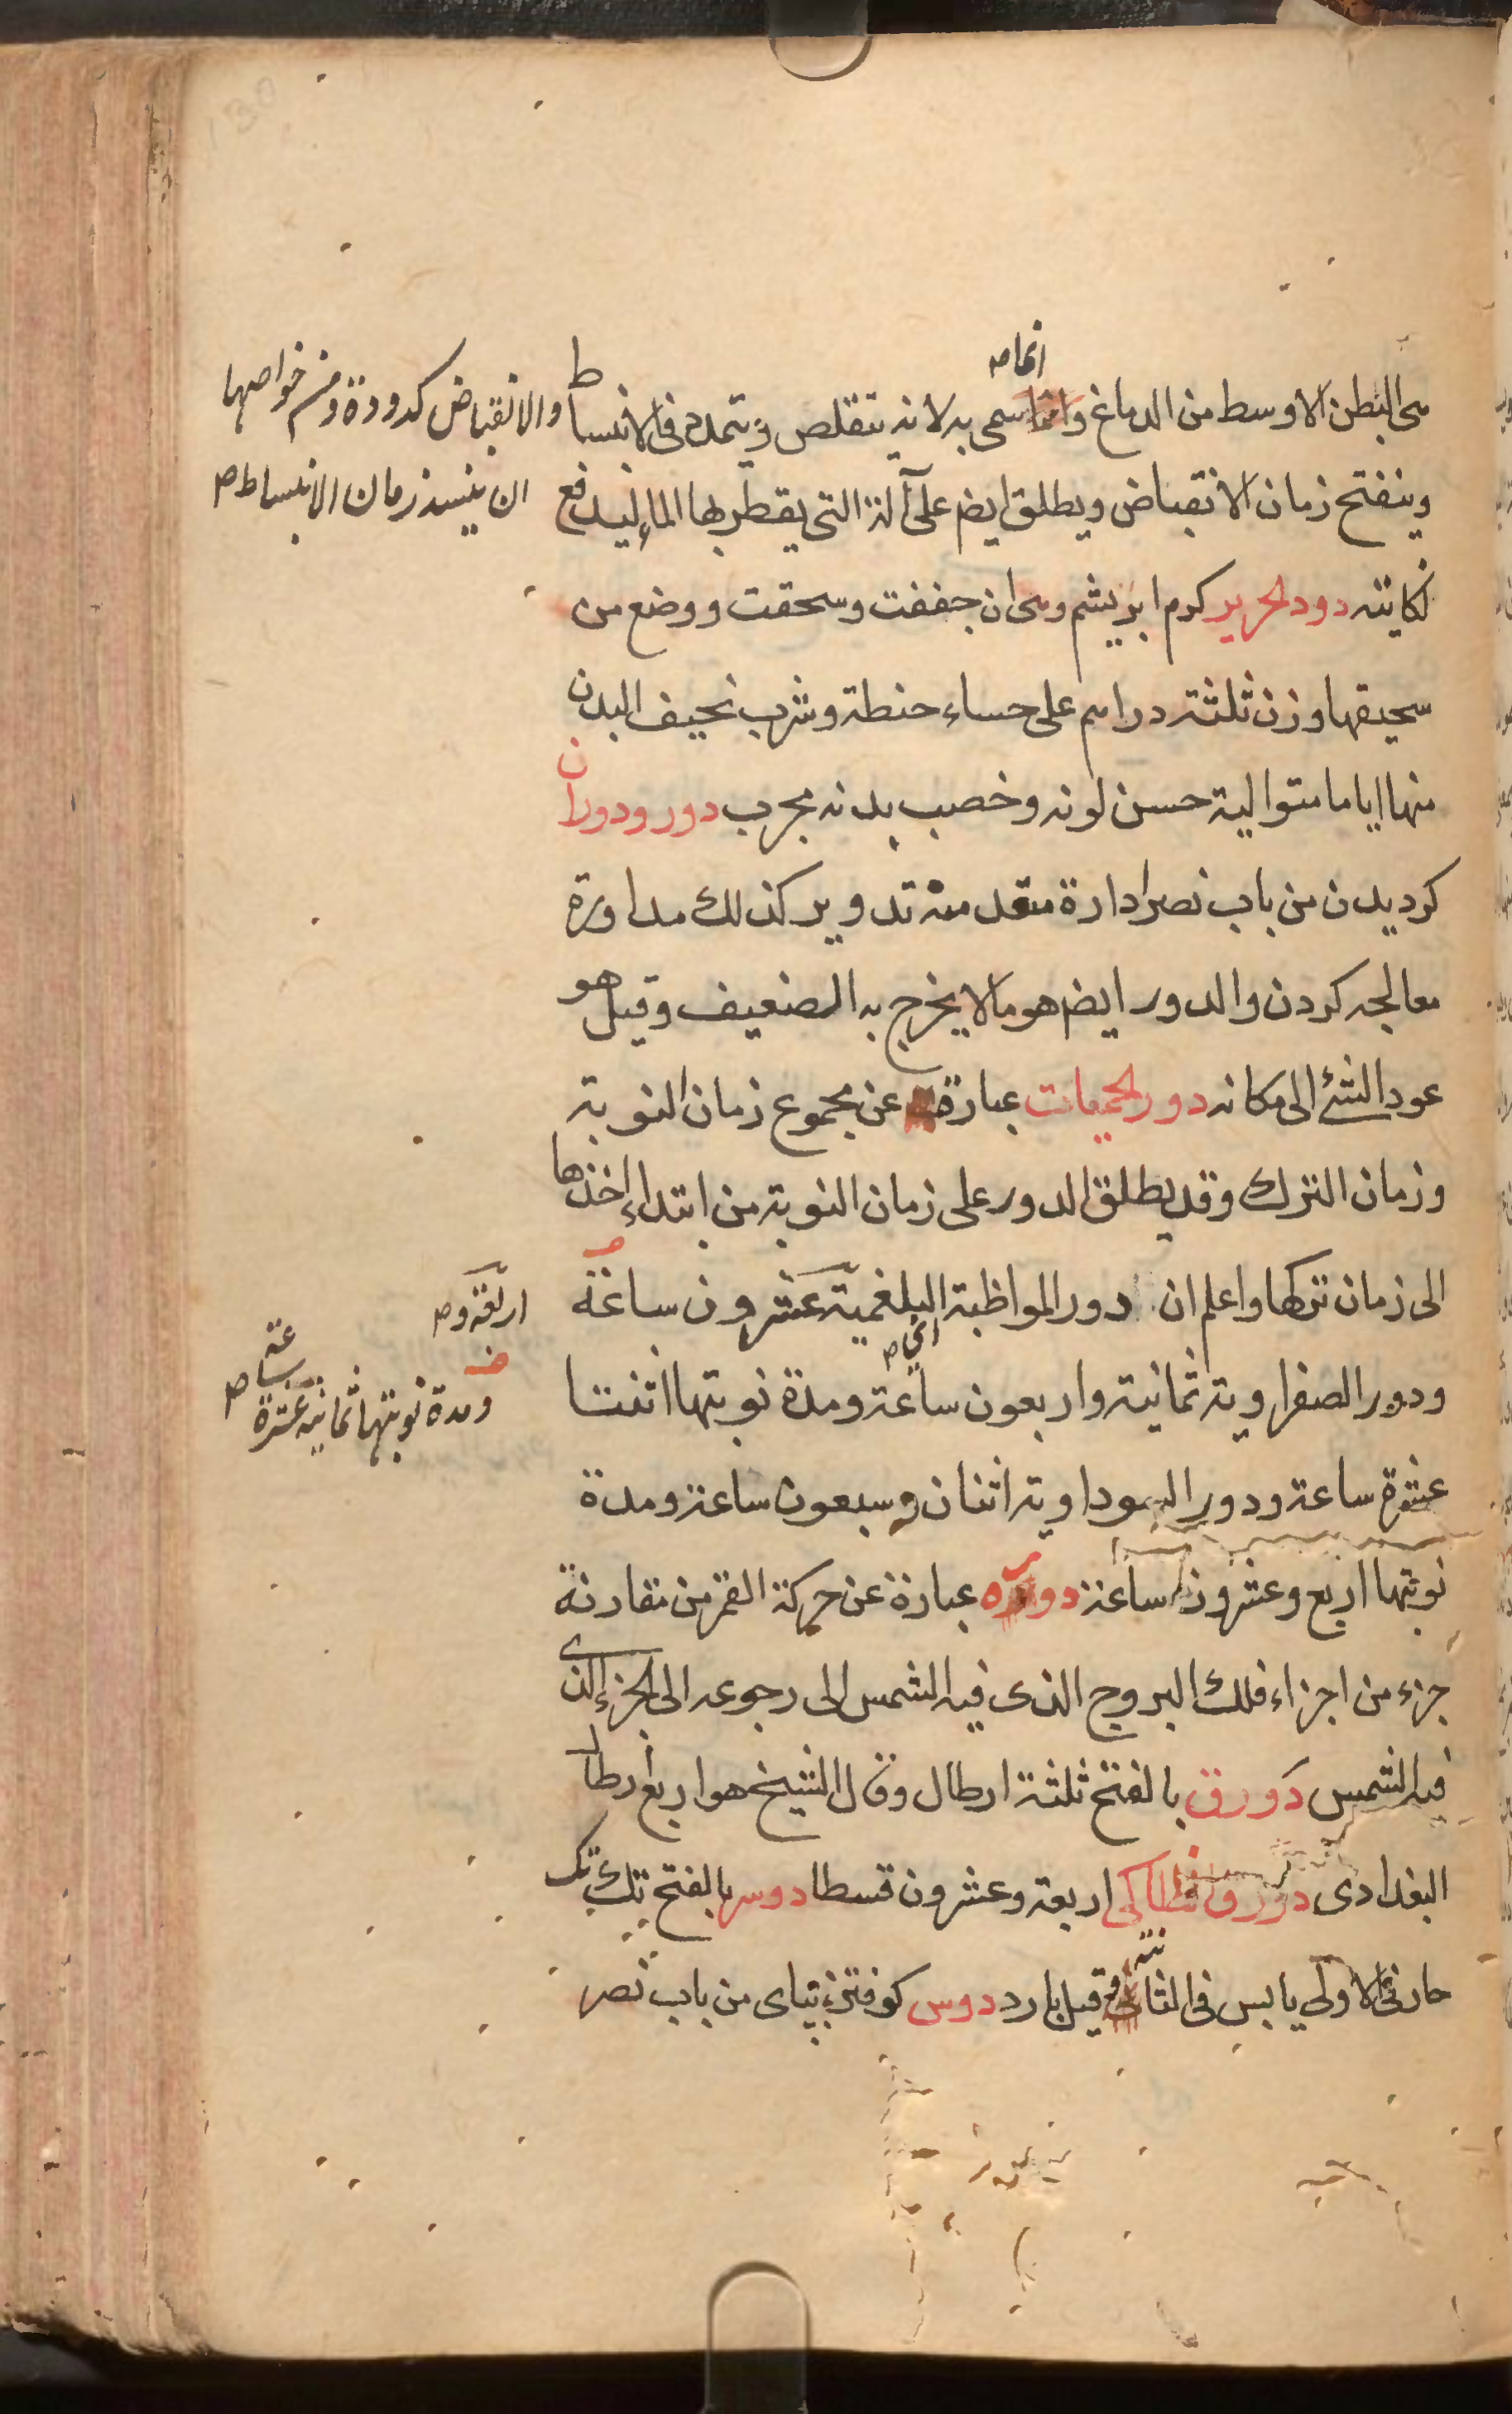 هى البطن الاوسط من الدماغ وانما سمى به لانه يتقلص ويتمدد فى الانبساط
انما صه
والانقباض كدودة ومن خواصها
ان ينسد زمان الانبساط صه
وينفتح زمان الانقباض ويطلق ايضا على آلة التى يقطر بها الماء ليدفع
نكايته دود الحرير كرم ابريشم وهى ان جففت وسحقت ووضع من
سحيقها وزن ثلثة دراهم على حساء حنطة وشرب نحيف البدن
منها اياما متوالية حسن لونه وخصب بدنه مجرب دور ودوران
كرديدن من باب نصر ادارة متعد منه تدوير كذلك مداورة
معالجه كردن والدور ايضا هو مالا يخرج به الضعيف وقيل هو
عود الشئ الى مكانه دور الحميات عبارة عن مجموع زمان النوبة
وزمان الترك وقد يطلق الدور على زمان النوبة من ابتداء اخذها
الى زمان تركها واعلم ان دور المواظبة البلغمية عشرون ساعة
اربعة و صه
اى صه
ومدة نوبتها ثمانية عشرة ساعة صه
ودور الصفراوية ثمانية واربعون ساعة ومدة نوبتها اثنتا
عشرة ساعة ودور السوداوية اثنان وسبعون ساعة ومدة
نوبتها اربع وعشرون ساعة دوره عبارة عن حركة القمر من مقارنة
جزء من اجزاء فلك البروج الذى فيه الشمس الى رجوعه الى الجزء الذى
فيه الشمس دَورق بالفتح ثلثة ارطال وقال الشيخ هو اربع ارطال
البغدادى دورق انطاكى اربعة وعشرون قسطا دوسر بالفتح تك تك
حار فى الاولى يابس فى الثانية قيل بارد دوس كوفتن بپاى من باب نصر